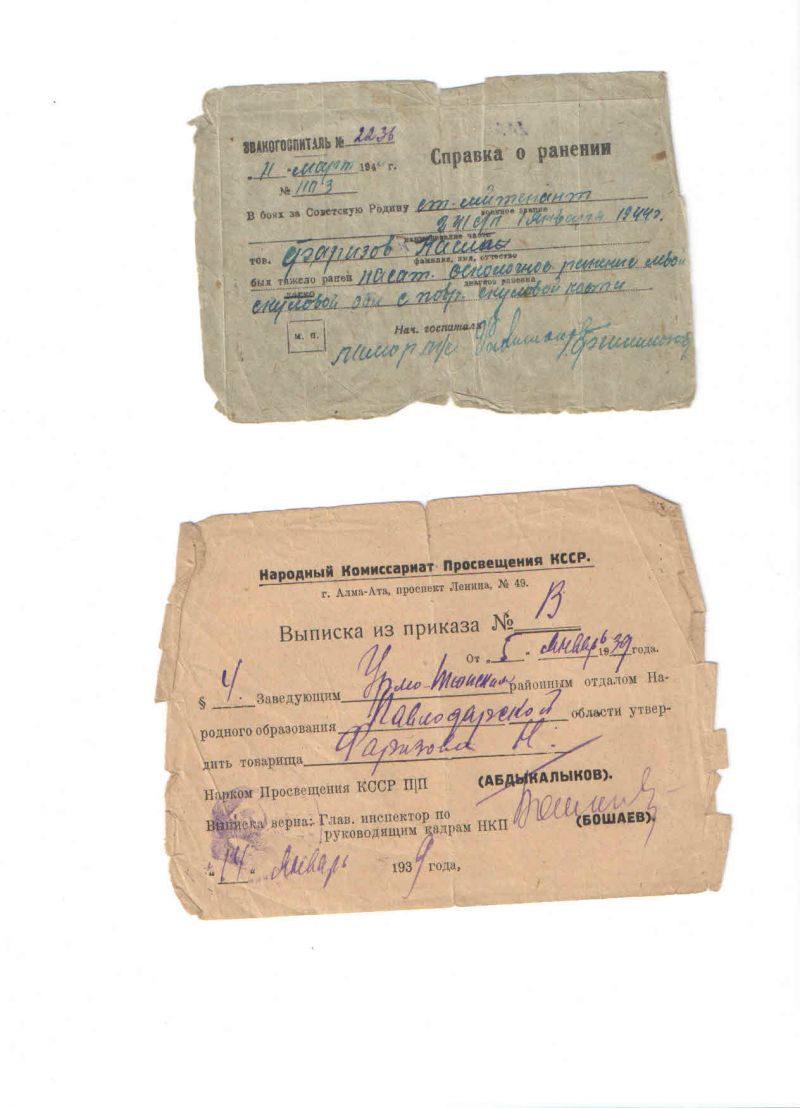 ЭВАКОГОСПИТАЛЬ № 2236
"11" март 194 г.
№ 1103
Справка о ранении
В боях за Советскую Родину ст. лейтенант
военное звание
1 января 1944г.
наименование части
тов. Фаризов
фамилия, имя, отчество
был тяжело ранен осколочное ранение левой
легко
диагноз ранения
скуловой обл с повр. скуловой кости
М. П.
Нач. госпиталя
Народный Комиссариат Просвещения КССР.
г. Алма-Ата, проспект Ленина, № 49.
Выписка из приказа № В
От "5" январь 1939 года.
§ 4. Заведующим районным отдалом На-
родного образования Павлодарской области утвер-
дить товарища Фаризова Н.
Нарком Просвещения КССР П|П (АБДЫКАЛЫКОВ).
Выписка верна: Глав. инспектор по
руководящим кадрам НКП (БОШАЕВ).
"14" январь 1939 года,